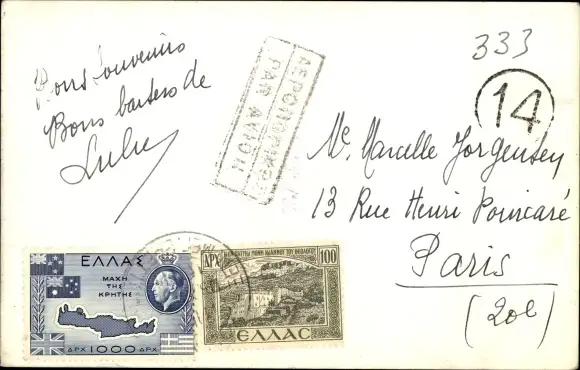 Bons Souvenirs
Bons baisers de
Lulu
ΑΕΡΟΠΟΡΙΚΩΣ
PAR AVION
333
14
Me Marcelle Jorgensen
13 Rue Henri Poincaré
Paris
(20e)
ΕΛΛΑΣ
ΜΑΧΗ
ΤΗΣ
ΚΡΗΤΗΣ
ΔΡΧ 1000 ΔΡΧ
ΜΟΝΗ ΙΩΑΝΝΟΥ ΤΟΥ ΘΕΟΛΟΓΟΥ
ΔΡΧ 100
ΕΛΛΑС